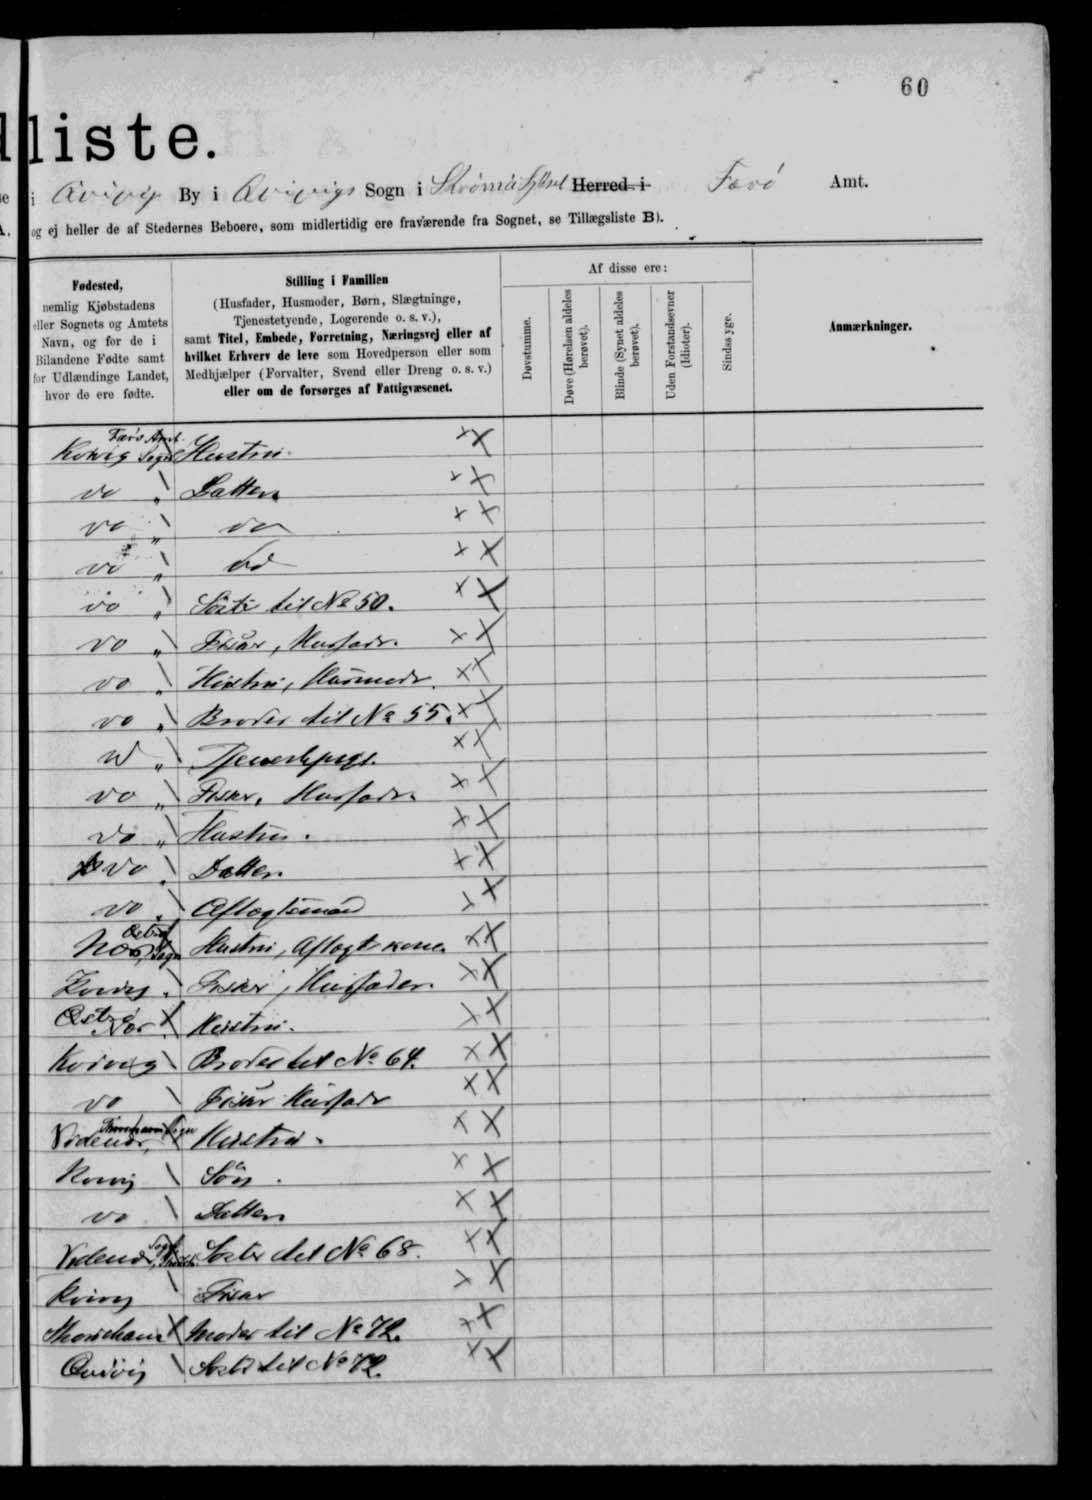 60
liste.
i Qvivig By i Qvivigs Sogn i Strömö Syssel Herred i Færö Amt.
og ej heller de af Stedernes Beboere, som midlertidig ere fraværende fra Sognet, se Tillægsliste B).
Fødested,
nemlig Kjøbstadens
eller Sognets og Amtets
Navn, og for de i
Bilandene Fødte samt
for Udlændinge Landet,
hvor de ere fødte.
Stilling i Familien
(Husfader, Husmoder, Børn, Slægtninge,
Tjenestetyende, Logerende o. s. v.),
samt Titel, Embede, Forretning, Næringsvej eller af
hvilket Erhverv de leve som Hovedperson eller som
Medhjælper (Forvalter, Svend eller Dreng o. s. v.)
eller om de forsørges af Fattigvæsenet.
Af disse ere:
Døvstumme.
Døve (Hørelsen aldeles
berøvet).
Blinde (Synet aldeles
berøvet).
Uden Forstandsevner
(Idioter).
Sindssyge.
Anmærkninger.
Færö Amt.
Kvivig Sogn Hustru
do " Datter
do " do
do " do
do " Söster til No 50.
do " Fisker, Husfader
do " Hustru, Husmoder
do " Broder til No 55.
do " Tjenestepige
do " Fisker, Husfader
do " Hustru
do Datter
do Aftægtsmand
Österö
Næs Sogn Hustru, Aftægtskone
Kvivig Fisker, Husfader
Österö
Nær Hustru
Kvivig Broder til No 64.
do Fisker Husfader
Thorshavn Sogn
Videnær, Hustru
Kvivig Sön
do Datter
Videnær, Söster til No 68.
Kvivig Fisker
Thorshavn Moder til No 72.
Qvivig Söster til No 72.